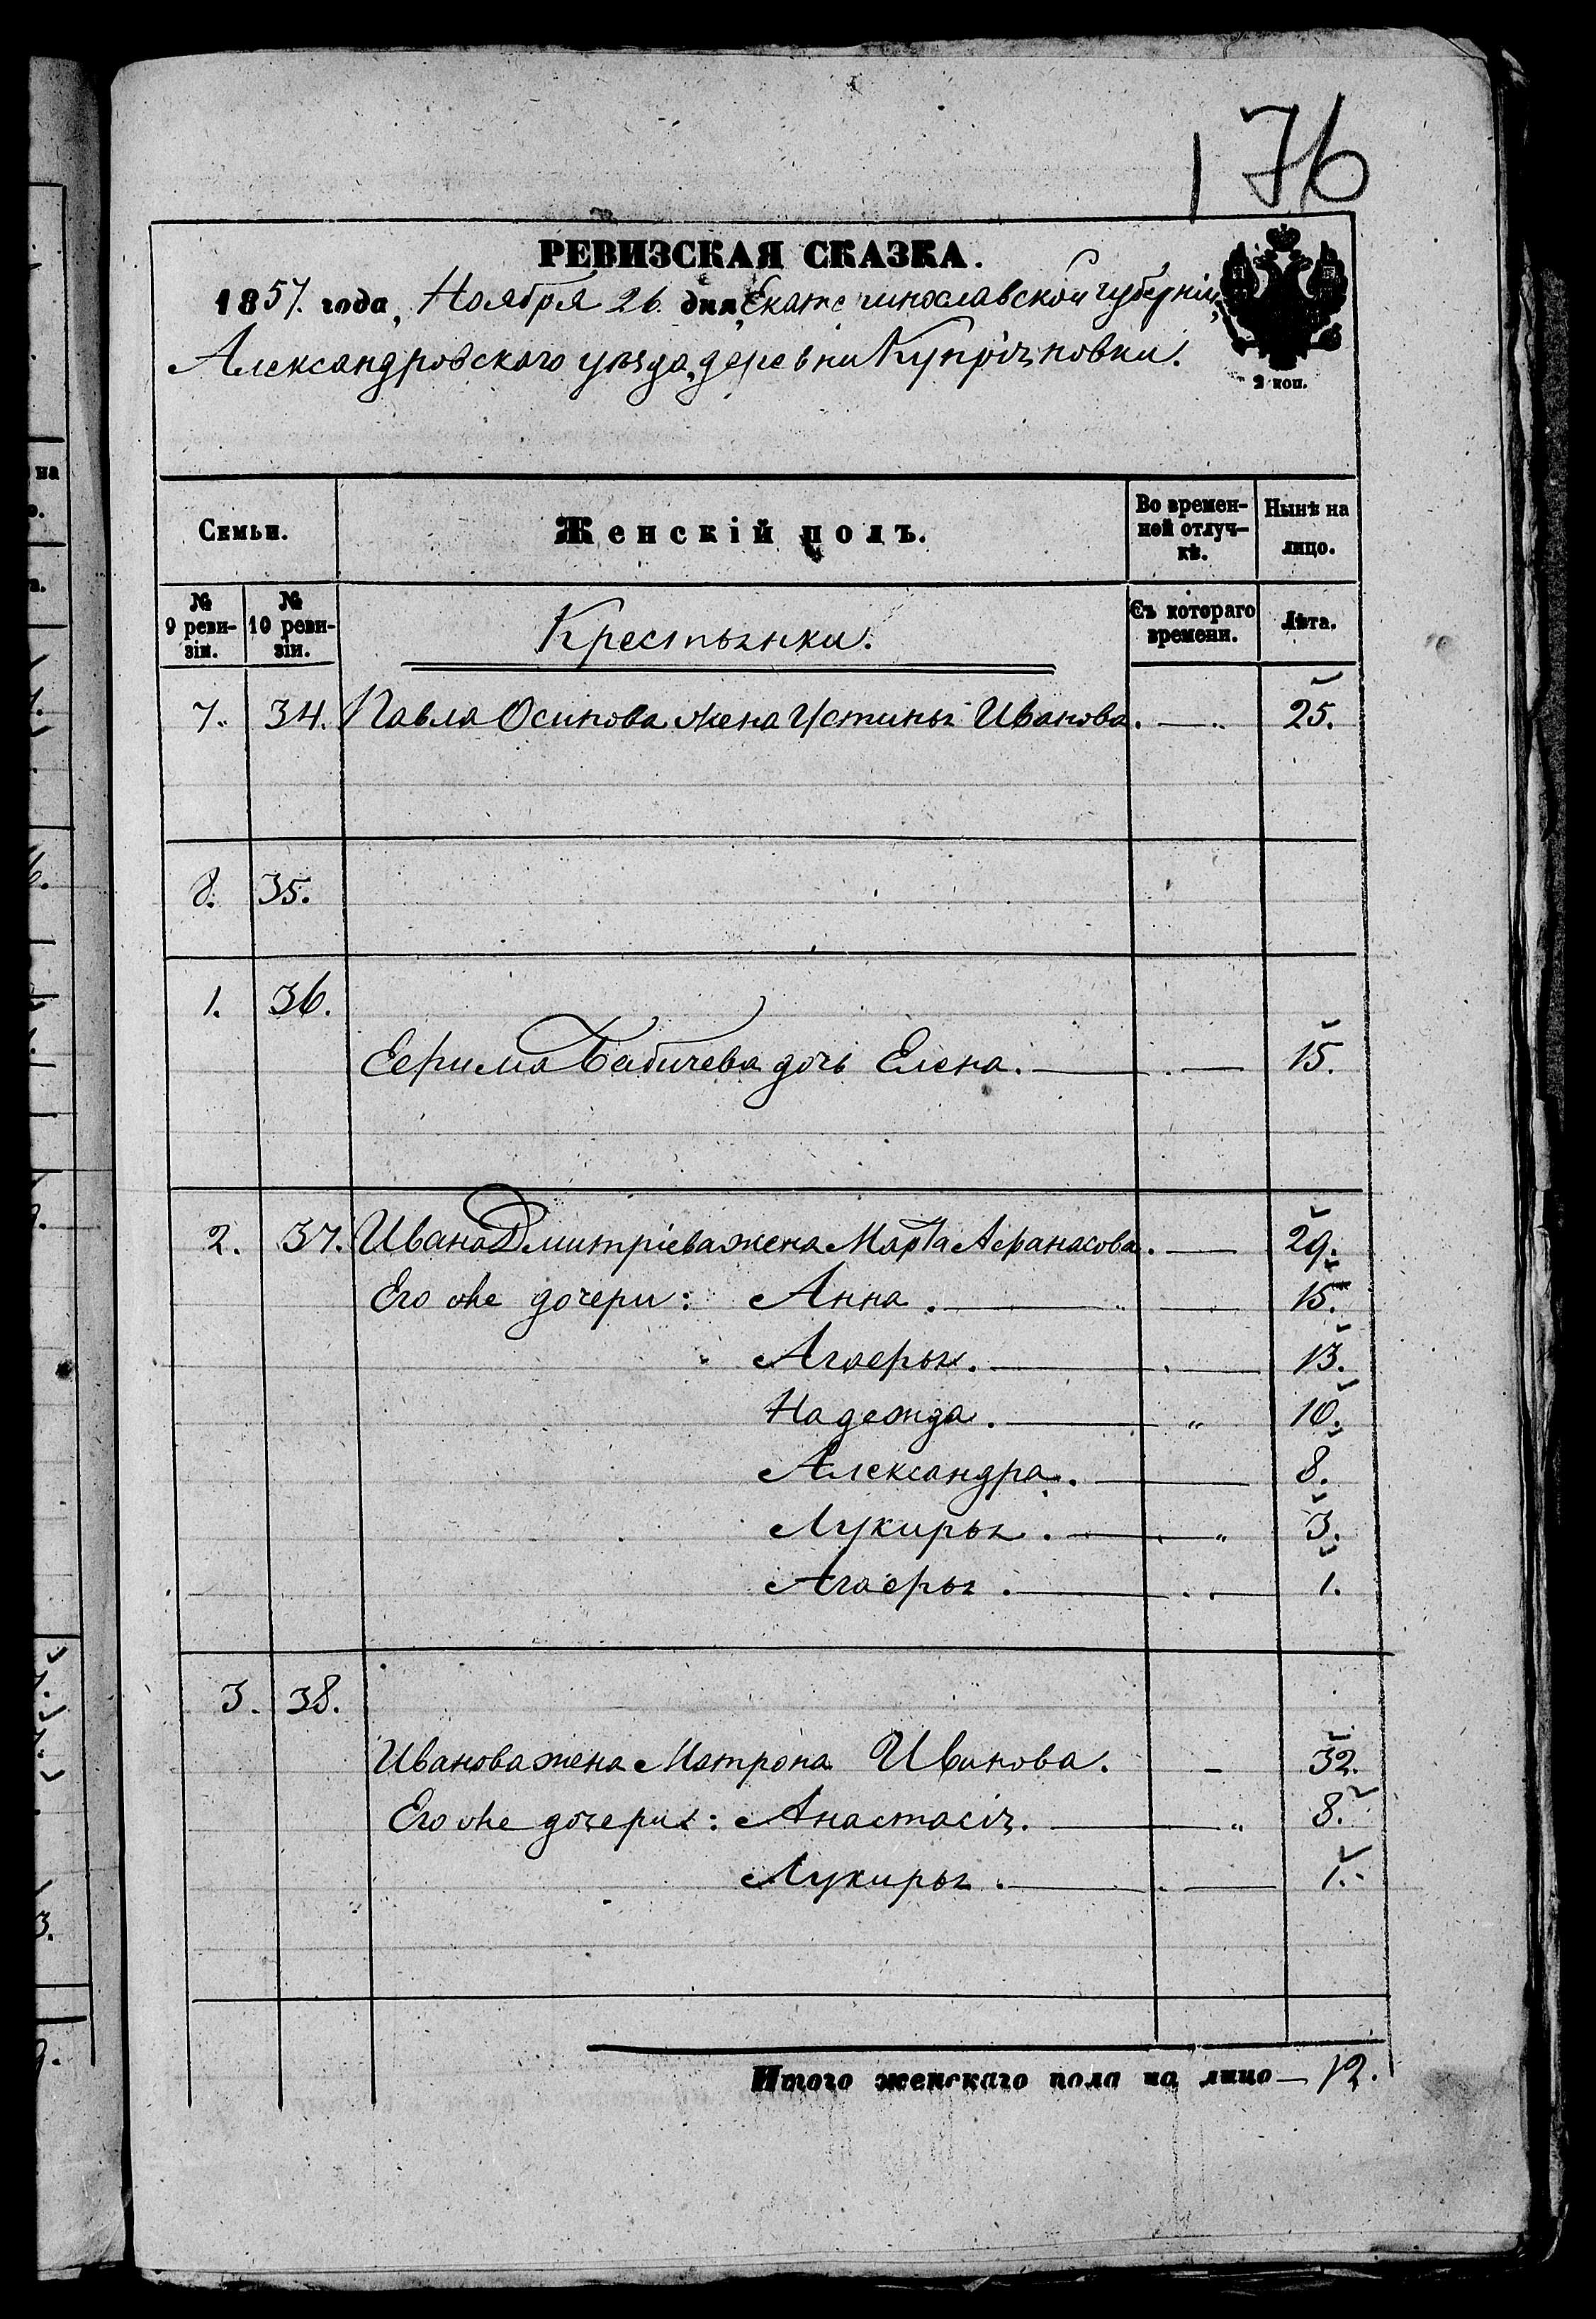 176
РЕВИЗСКАЯ СКАЗКА.
1857. года, Ноября 26. дня, Екатеринославской губерніи,
Александровского уѣзда, деревни Купріяновки.
2 коп.
Семьи.
Женскій полъ.
Во временной отлучкѣ.
Нынѣ на лицо.
№ 9 ревизіи.
№ 10 ревизіи.
Крестьянки.
Съ котораго времени.
Лѣта.
7. 34. Павла Осипова жена Устинья Иванова. 25.
8. 35.
1. 36.
Ефима Бабичева дочь Елена. 15.
2. 37. Ивана Дмитріева жена Марфа Афанасова. 29.
Его же дочери: Анна. 15.
Агафья. 13.
Надежда. 10.
Александра. 8.
Лукирья. 3.
Агафья. 1.
3. 38.
Иванова жена Матрона Иванова. 32.
Его же дочери: Анастасія. 8.
Лукирья. 1.
Итого женскаго пола на лицо 12.